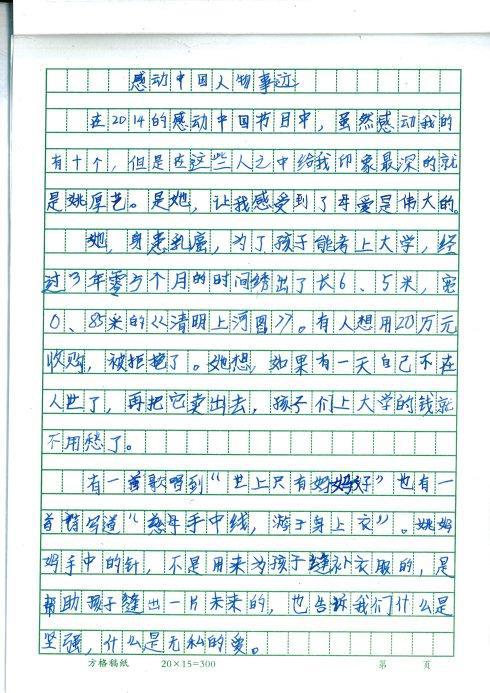 感动中国人物事迹
在2014的感动中国节目中，虽然感动我的
有十个，但是在这些人之中给我印象最深的就
是姚厚芝。是她，让我感受到了母爱是伟大的。
她，身患乳癌，为了孩子能考上大学，经
过3年零5个月的时间绣出了长6、5米，宽
0、85米的《清明上河图》。有人想用20万元
收购，被拒绝了。她想，如果有一天自己不在
人世了，再把它卖出去，孩子们上大学的钱就
不用愁了。
有一首歌唱到“世上只有妈妈好”也有一
首诗写道“慈母手中线，游子身上衣”。姚妈
妈手中的针，不是用来为孩子缝补衣服的，是
帮助孩子缝出一片未来的，也告诉我们什么是
坚强，什么是无私的爱。
方格稿纸 20×15=300 第 页